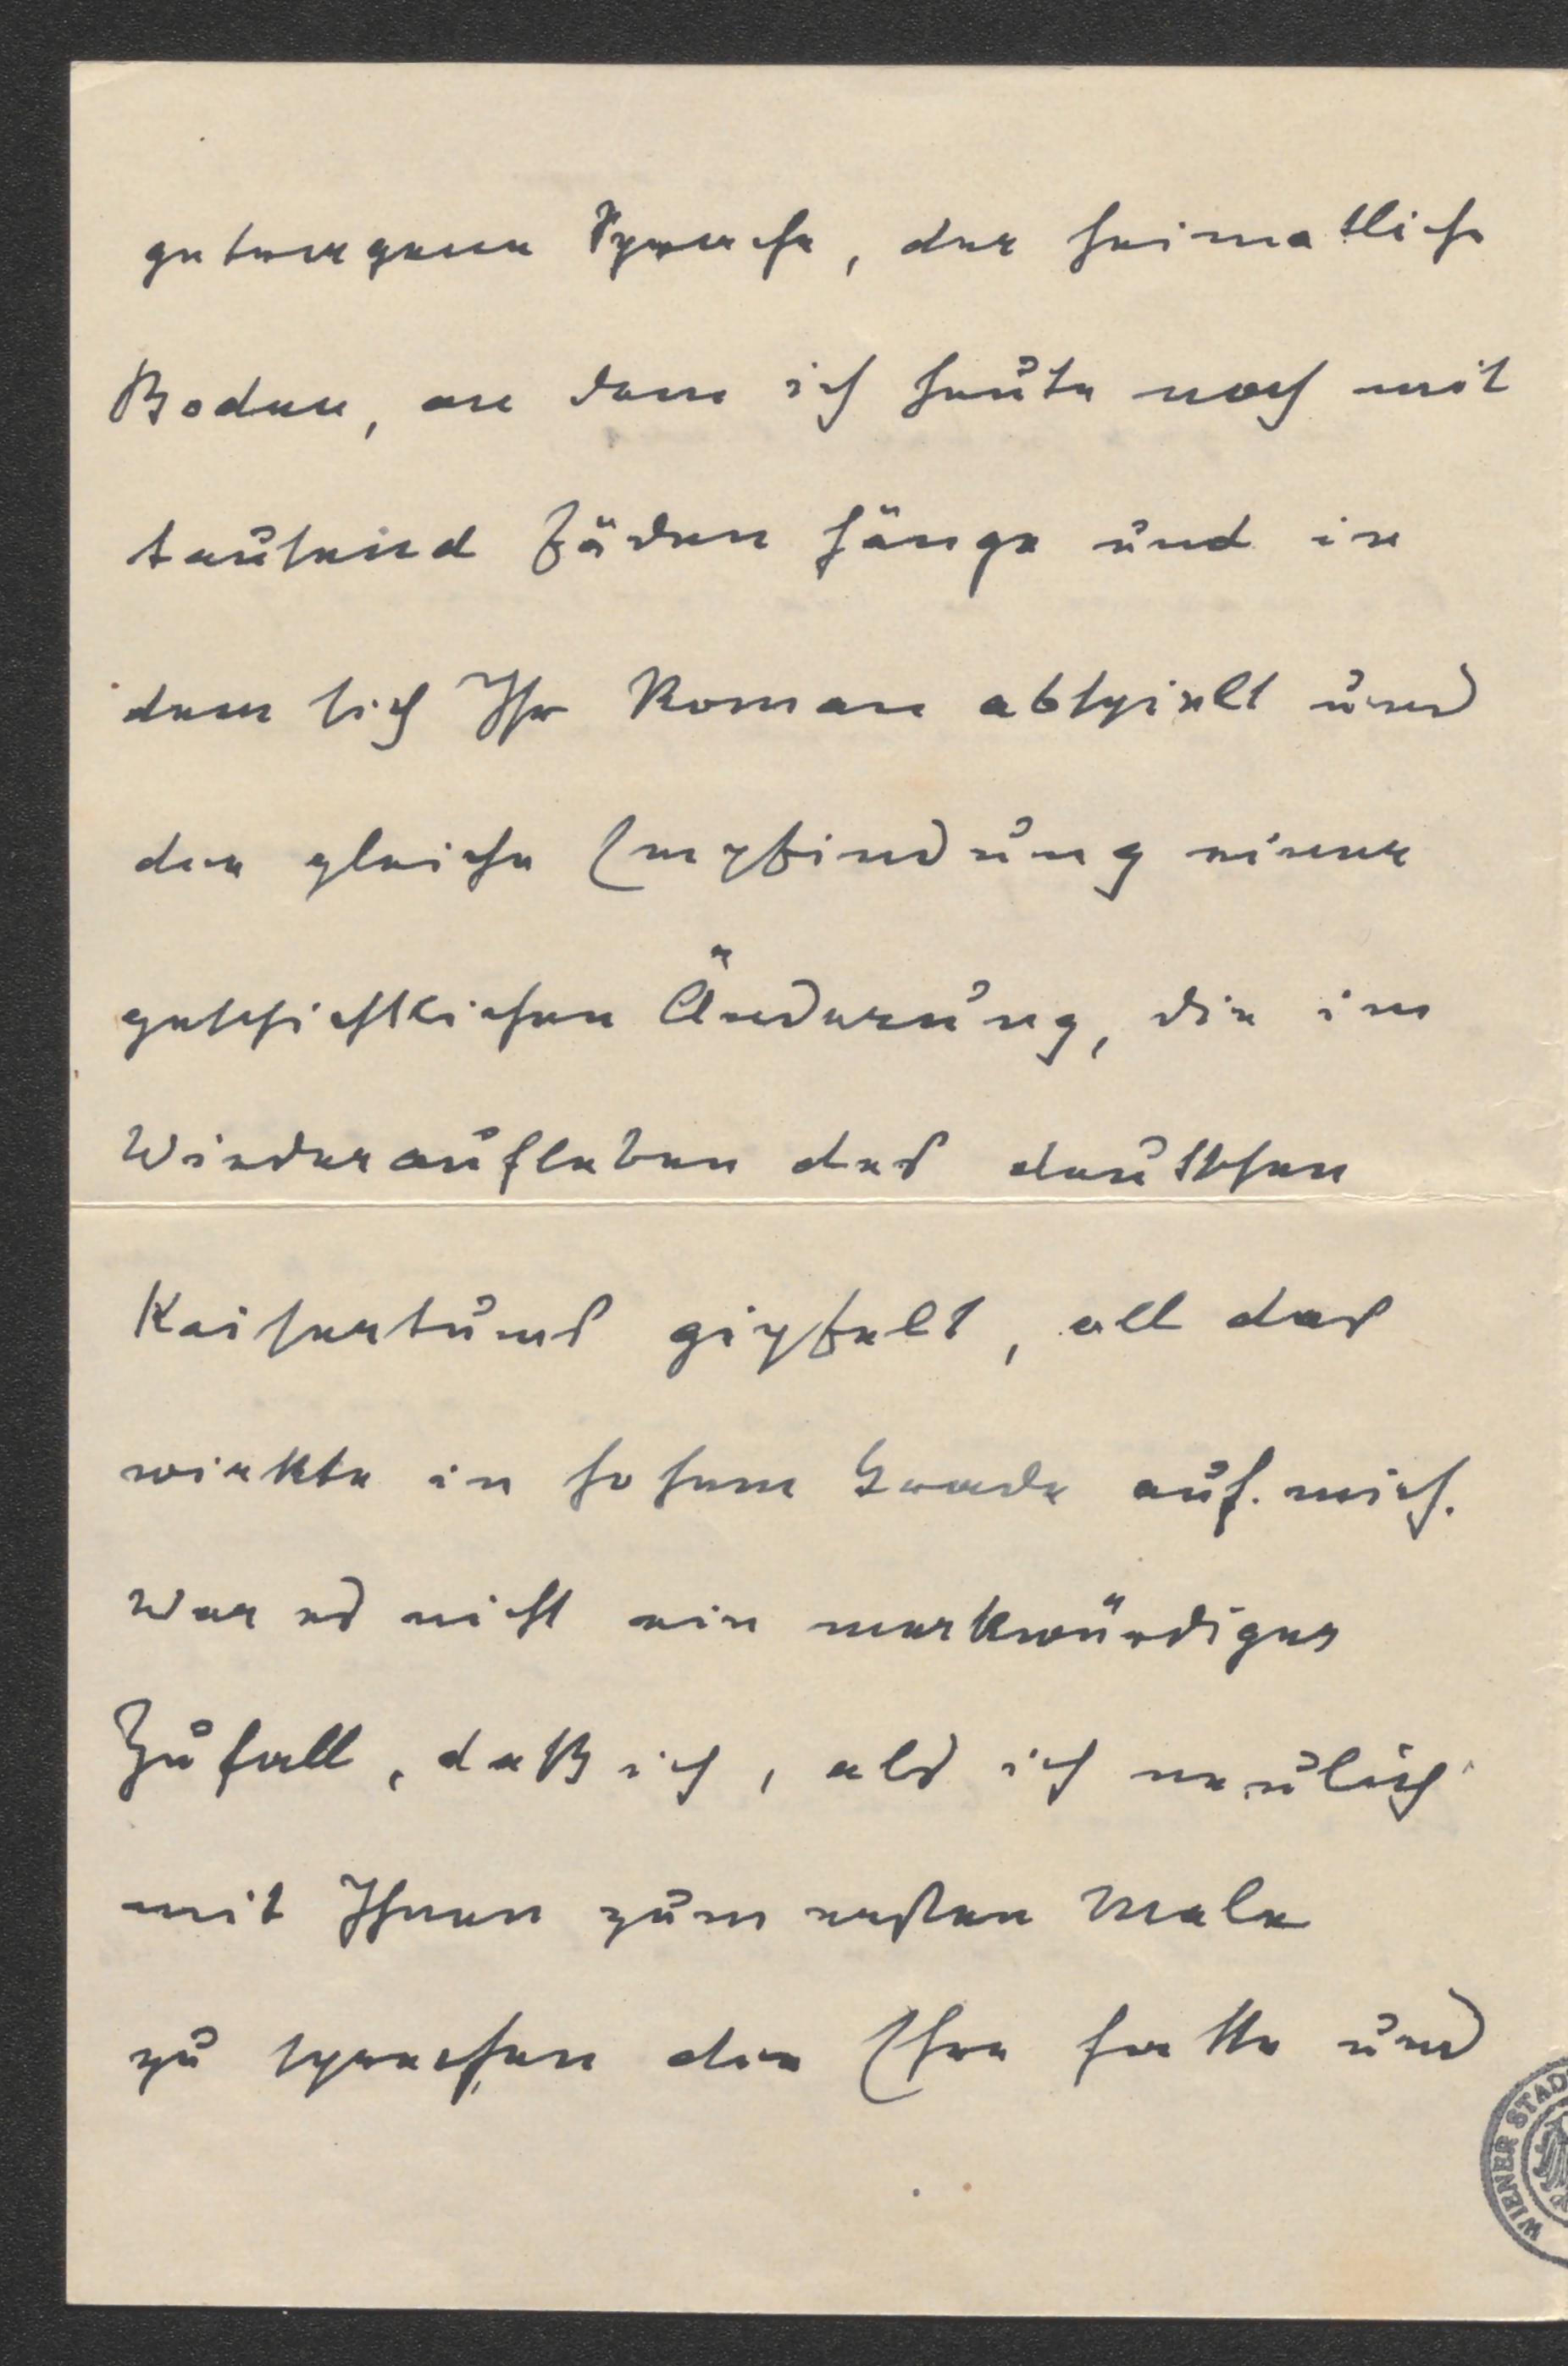 getragenen Sprache, der heimatliche
Boden, an dem ich heute noch mit
tausend Fäden hänge und in
dem sich Ihr Roman abspielt und
die gleiche Empfindung einer
geschichtlichen Änderung, die im
Wiederaufleben des deutschen
Kaisertums gipfelt, all das
wirkte in hohem Grade auf mich.
War es nicht ein merkwürdiger
Zufall, daß ich, als ich neulich
mit Ihnen zum ersten Male
zu sprechen die Ehre hatte und
WIENER STAD